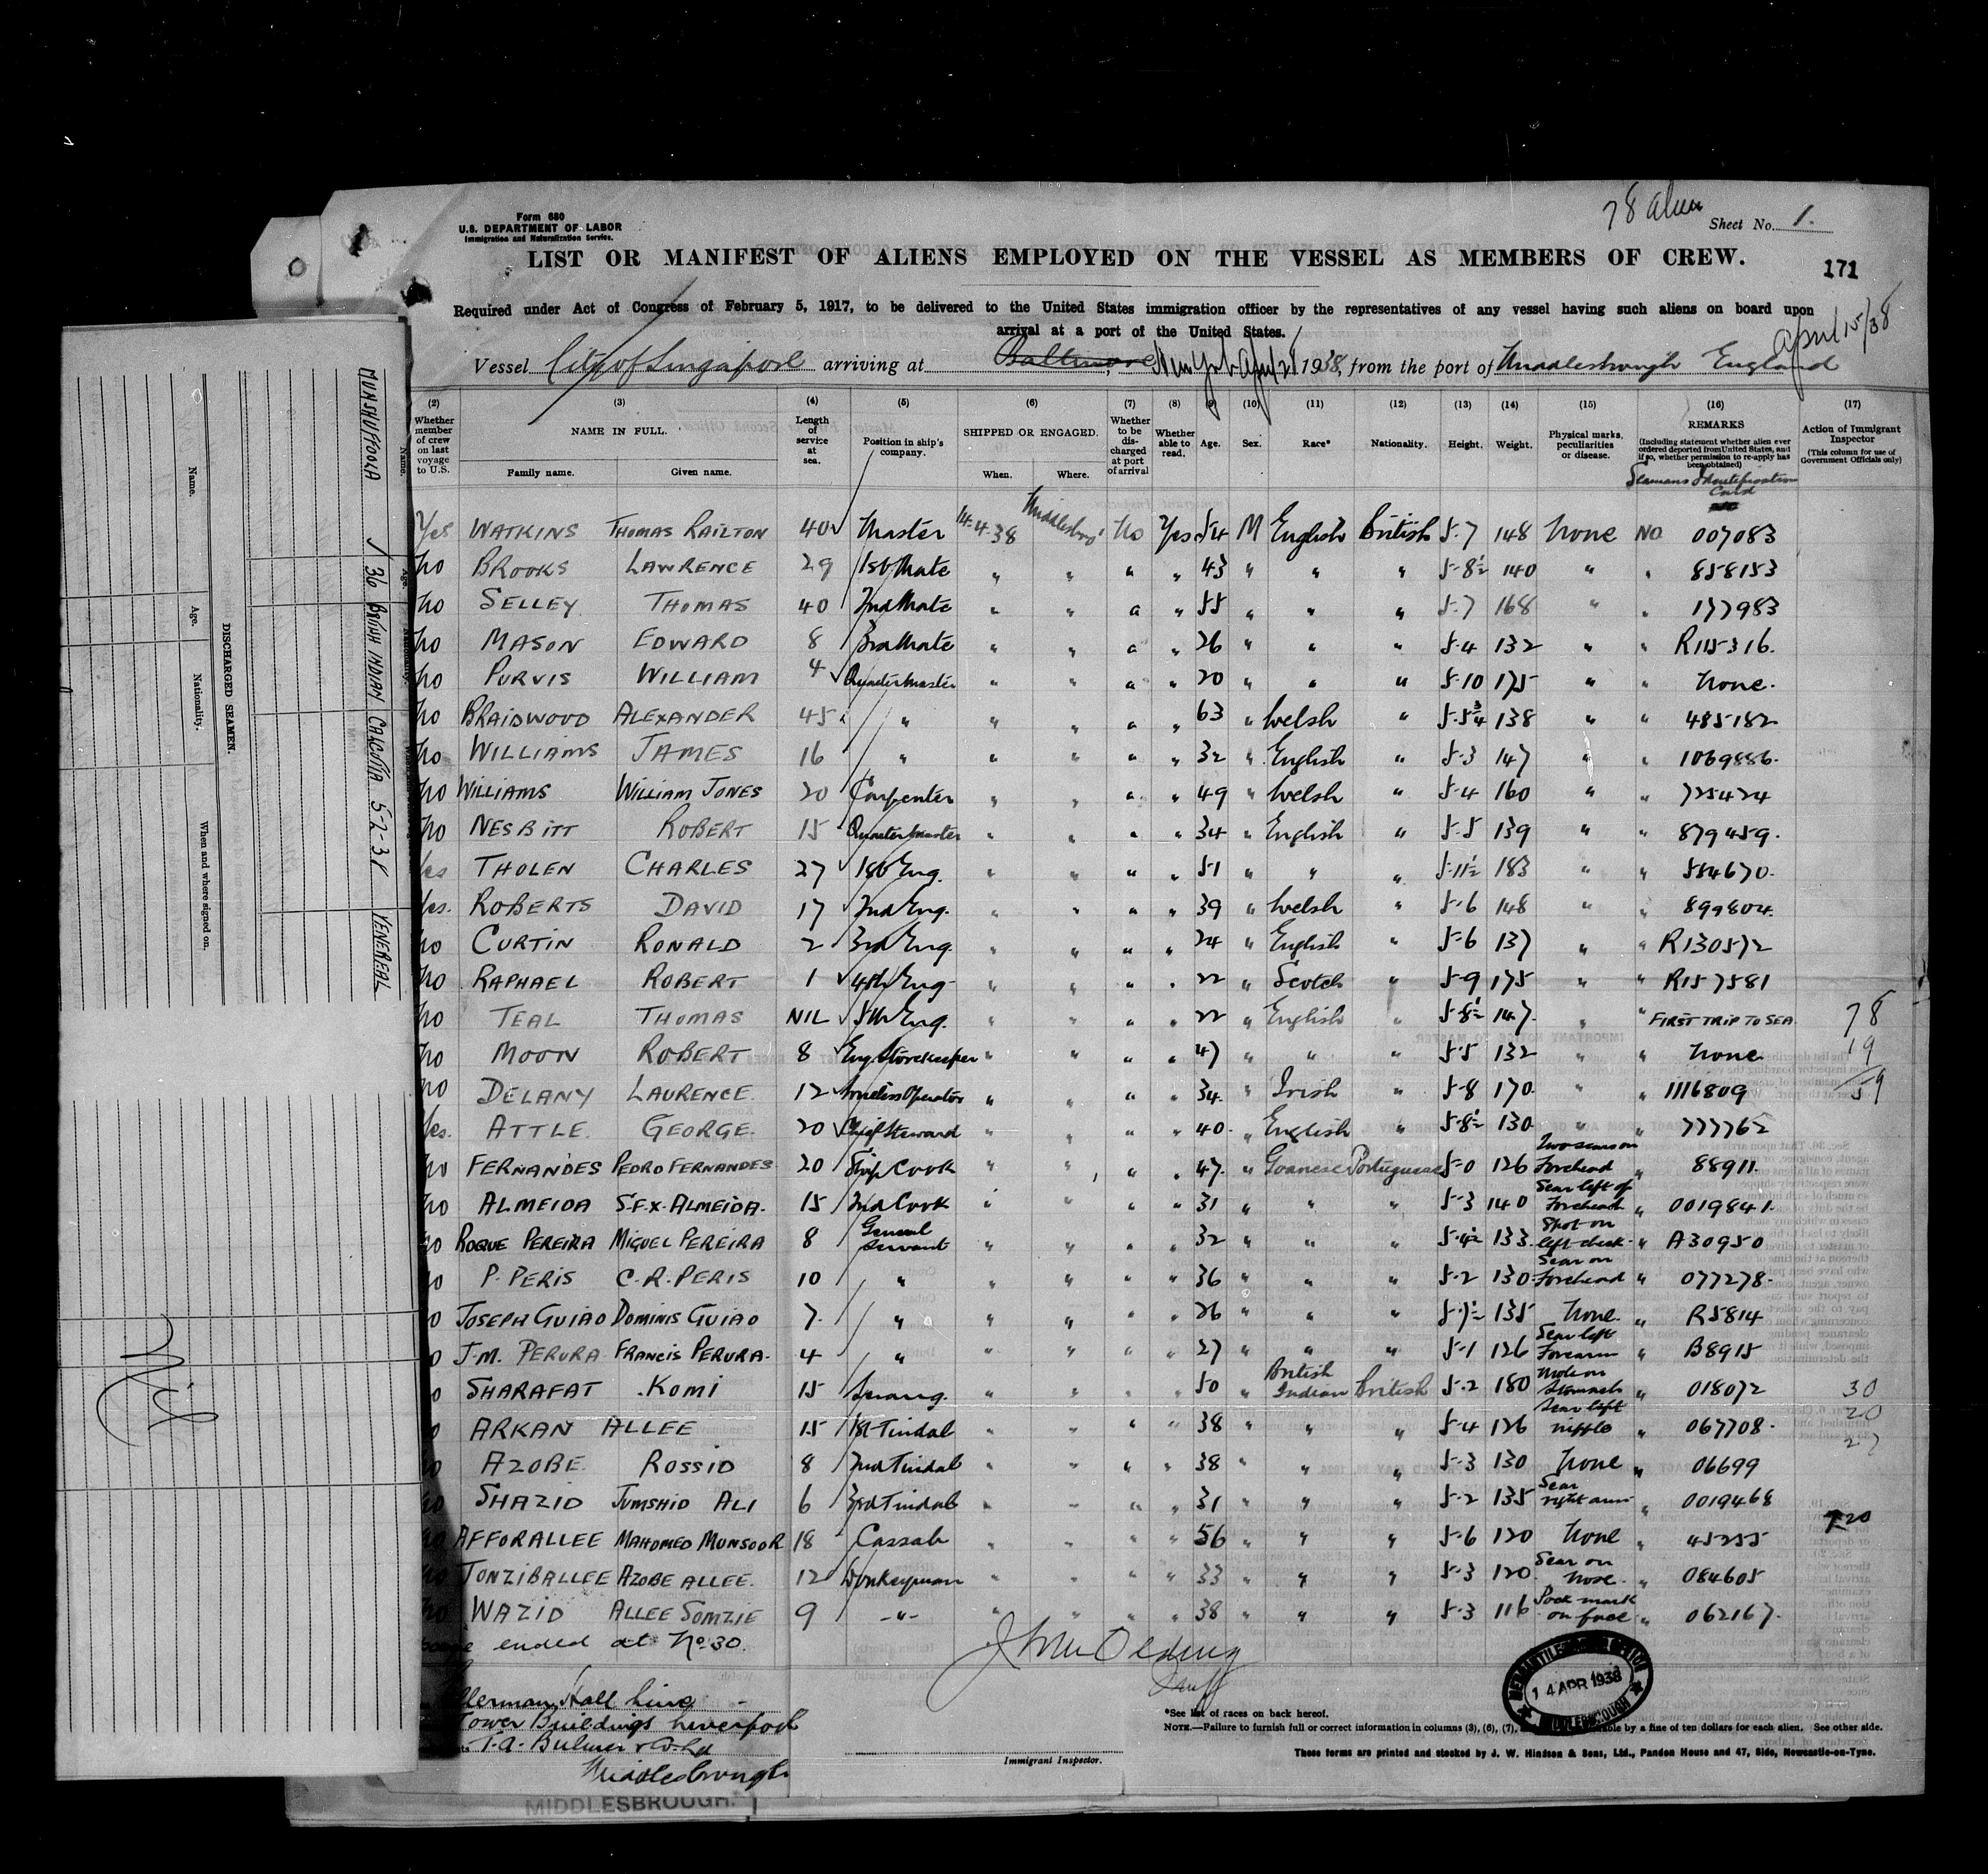 78 alien
Form 680
U.S. DEPARTMENT OF LABOR
Immigration and Naturalization Service.
Sheet No. 1.
LIST OR MANIFEST OF ALIENS EMPLOYED ON THE VESSEL AS MEMBERS OF CREW.
171
Required under Act of Congress of February 5, 1917, to be delivered to the United States immigration officer by the representatives of any vessel having such aliens on board upon
arrival at a port of the United States.
April 15/38
Vessel City of Singapore arriving at Baltimore, New York 1938, from the port of Middlesbrough England
(2) (3) (4) (5) (6) (7) (8) (9) (10) (11) (12) (13) (14) (15) (16) (17)
Whether member of crew on last voyage to U.S. NAME IN FULL. Family name. Given name. Length of service at sea. Position in ship's company. SHIPPED OR ENGAGED. When. Where. Whether to be discharged at port of arrival Whether able to read. Age. Sex. Race* Nationality. Height. Weight. Physical marks, peculiarities or disease. REMARKS (Including statement whether alien ever ordered deported from United States, and if so, whether permission to re-apply has been obtained) Action of Immigrant Inspector (This column for use of Government Officials only)
Seamans Identification Card
Yes WATKINS THOMAS RAILTON 40 Master 14.4.38 Middlesbro' No Yes 54 M English British 5-7 148 None NO 007083
No BROOKS LAWRENCE 29 1st Mate " " " " 43 " " " 5-8½ 140 " " 858153
No SELLEY THOMAS 40 2nd Mate " " " " 55 " " " 5-7 168 " " 177983
No MASON EDWARD 8 3rd Mate " " " " 26 " " " 5-4 132 " " R115316.
No PURVIS WILLIAM 4 Quartermaster " " " " 20 " " " 5-10 175 " " None.
No BRAIDWOOD ALEXANDER 45 " " " " " 63 " Welsh " 5-5¾ 138 " " 485182
No WILLIAMS JAMES 16 " " " " " 32 " English " 5-3 147 " " 1069886.
No WILLIAMS WILLIAM JONES 20 Carpenter " " " " 49 " Welsh " 5-4 160 " " 725424
No NESBITT ROBERT 15 Quartermaster " " " " 34 " English " 5-5 139 " " 879459.
Yes THOLEN CHARLES 27 1st Eng. " " " " 51 " " " 5-11½ 183 " " 554670.
Yes. ROBERTS DAVID 17 2nd Eng. " " " " 39 " Welsh " 5-6 148 " " 899804.
No CURTIN RONALD 2 3rd Eng. " " " " 24 " English " 5-6 137 " " R130572
No RAPHAEL ROBERT 1 4th Eng. " " " " 22 " Scotch " 5-9 175 " " R157581
No TEAL THOMAS NIL 5th Eng. " " " " 22 " English " 5-8½ 147. " " FIRST TRIP TO SEA 78
No MOON ROBERT 8 Eng Storekeeper " " " " 47 " " " 5-5 132 " " None 19
No DELANY LAURENCE. 12 Wireless Operator " " " " 34. " Irish " 5-8 170. " " 1116809 59
Yes. ATTLE. GEORGE. 20 Chief Steward " " " " 40. " English " 5-8½ 130 " " 777762
No FERNANDES PEDRO FERNANDES 20 Ship Cook " " " " 47. " Goanese Portuguese 5-0 126 Two scars on Forehead " 88911.
No ALMEIDA S.F.X. ALMEIDA. 15 2nd Cook " " " " 31 " " " 5-3 140 Scar left of Forehead " 0019841.
No ROQUE PEREIRA MIGUEL PEREIRA 8 General Servant " " " " 32 " " " 5-4½ 133. Spot on left cheek " A30950
No P. PERIS C.R. PERIS 10 " " " " " 36 " " " 5-2 130 Scar on Forehead " 077278.
No JOSEPH GUIAO DOMINIS GUIAO 7. " " " " " 26 " " " 5-7½ 135 None. " R5814
No J.M. PERURA FRANCIS PERURA. 4 " " " " " 27 " " " 5-1 126 Scar left Forearm " B8915
No SHARAFAT KOMI 15 Serang. " " " " 50 " British Indian British 5-2 180 Mole on Stomach " 018072 30
No ARKAN ALLEE 15 1st Tindal " " " " 38 " " " 5-4 126 Scar left nipple " 067708. 20
No AZOBE ROSSID 8 2nd Tindal " " " " 38 " " " 5-3 130 None " 06699 27
No SHAZID JUMSHID ALI 6 3rd Tindal " " " " 31 " " " 5-2 135 Scar right arm " 0019468
No AFFORALLEE MAHOMED MUNSOOR 18 Cassab " " " " 56 " " " 5-6 120 None " 45255
No TONZIBALLEE AZOBE ALLEE. 12 Donkeyman " " " " 33 " " " 5-3 120 Scar on nose. " 084605
No WAZID ALLEE SOMZIE 9 -"- " " " " 38 " " " 5-3 116 Pock mark on face " 062167.
ended at No. 30.
Ellerman Hall Line
Tower Buildings Liverpool
T.A. Bulmer & Co. Ltd
Middlesbrough
MIDDLESBROUGH.
Immigrant Inspector.
MERCANTILE MARINE OFFICE
14 APR 1938
MIDDLESBROUGH
*See list of races on back hereof.
NOTE.—Failure to furnish full or correct information in columns (3), (6), (7), by a fine of ten dollars for each alien. See other side.
These forms are printed and stocked by J. W. Hindson & Sons, Ltd., Pandon House and 47, Side, Newcastle-on-Tyne.
DISCHARGED SEAMEN.
Name. Age. Nationality. When and where signed on.
MUNSHUFFOOLA 36 British INDIAN CALCUTTA 5-2-38 VENEREAL
Nil